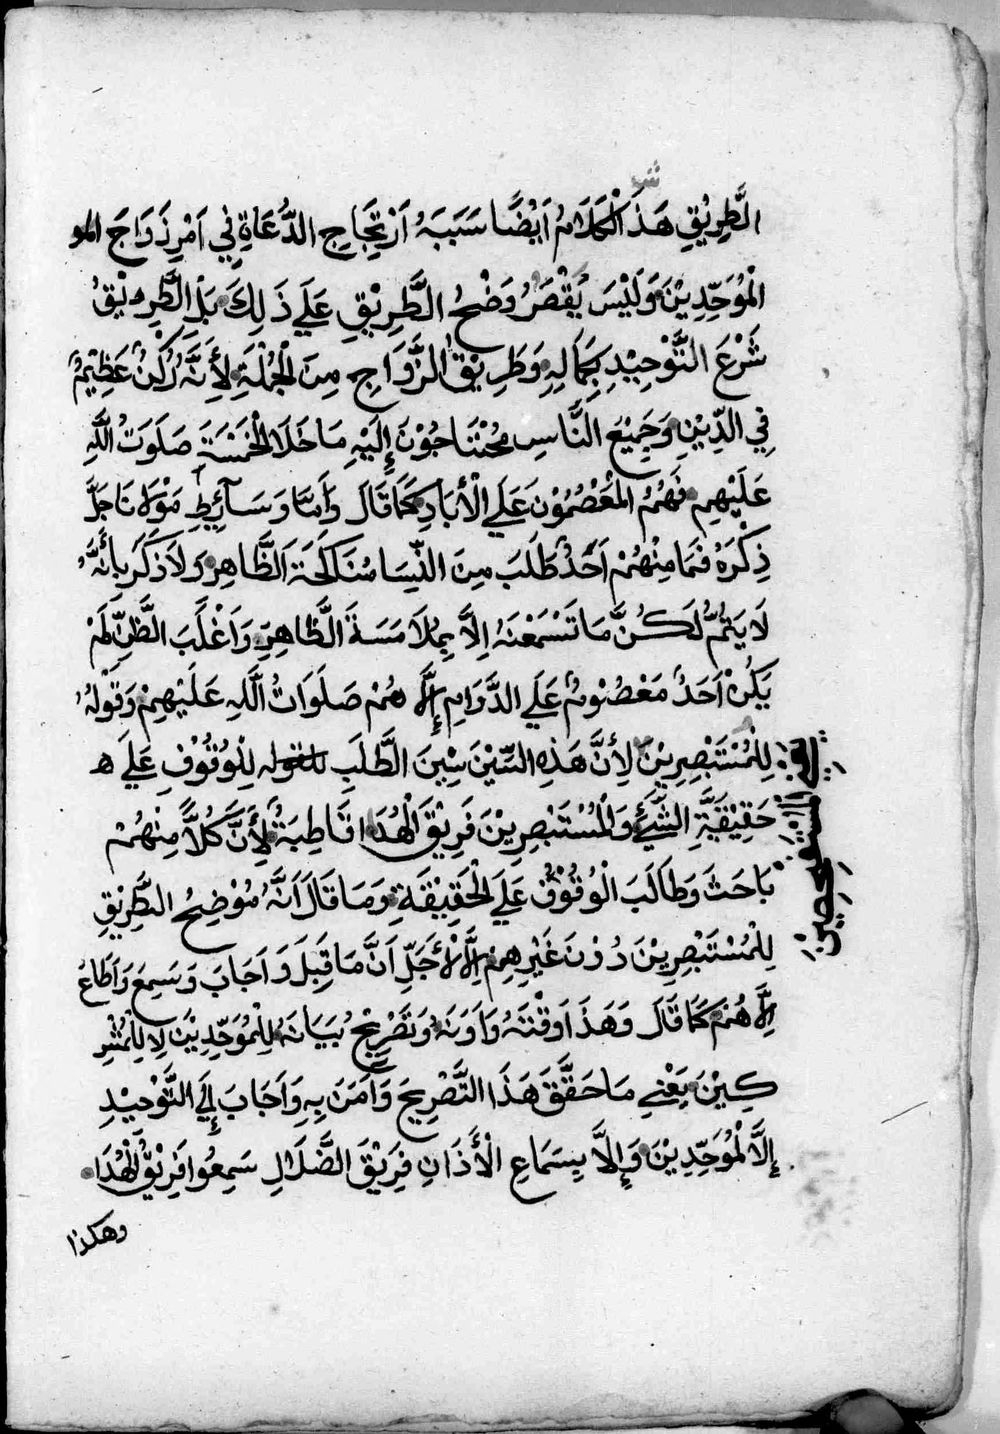 شر
الطَّرِيْقِ هَذَ الْكَلَامُ اَيْضًا سَبَبَهُ اَرْتِجَاجِ الدُّعَاةِ فِي اَمْرِ زَوَاجَ
الْمُوَحِّدِيْنَ وَلَيْسَ يُقْصَرُ وَضْحُ الطَّرِيْقِ عَلَي ذَلِكَ بَلْ الطَّرِيْقُ
شَرْعَ التَّوْحِيْدِ بِكَمَالِهِ وَطَرِيْقُ الزَّوَاجِ مِنَ الْجُمْلَةِ لِأَنَّهُ رُكْنٌ عَظِيْمٌ
فِي الدِّيْنِ وَجَمِيْعَ النَّاسِ مُحْتَاجُوْنَ إِلَيْهِ مَا خَلَا الْخَمْسَةَ صَلَوَتُ اللَّهِ
عَلَيْهِم فَهُمُ الْمَعْصُمُوْنَ عَلَي الْأَبَادِ كَمَا قَالَ وَأَمَّا وَسَآئِطِ مَوْلَانَا جَلَّ
ذِكْرَهُ فَمَا مِنْهُمْ اَحَدٌ طَلَبَ مِنَ النِّسَا مُنَاكَحَةَ الظَّاهِرِ وَلَا ذَكَرَ بِأَنَّهُ
لَا يَتُمُّ لَكُنَّ مَا تَسْمَعْنَهُ اِلَّا بِمُلَامَسَةَ الظَّاهِرِ وَاَغْلَبَ الظَّنِّ لَمْ
يَكُنْ اَحَدٌ مَعْصُوْمٌ عَلَي الدَّوَامِ إِلَّا هُمْ صَلَوَاتُ اللَّهِ عَلَيْهِمْ وَقَوْلُهُ
لِلْمُسْتَبْصِرِيْنَ لِأَنَّ هَذِهِ السِّيْنَ سِيْنَ الطَّلَبِ لِلْوُقُوْفِ عَلَي
حَقِيْقَةِ الشَّيْءِ وَالْمُسْتَبْصِرِيْنَ فَرِيْقَ الْهُدَا قَاطِبَةً لِأَنَّ كُلًّا مِنْهُمْ
بَاحَثَ وَطَالَبَ الْوُقُوْفُ عَلَي الْحَقِيْقَةِ وَمَا قَالَ اَنَّهُ مُوْضِحُ الطَّرِيْقِ
لِلْمُسْتَبْصِرِيْنَ دُوْنَ غَيْرِهِمْ اِلَّا لِأَجَلِّ اَنَّ مَا قَبِلَ وَاَجَابَ وَسَمِعَ وَاَطَاعَ
اِلَّا هُمْ كَمَا قَالَ وَهَذَا وَقْتَهُ وَاَوَنَهُ وَتَصْرِيْحُ بَيَانَهُ لِلْمُوَحِّدِيْنَ لَا لِلْمُشْرِ
كِيْنَ يَعْنِي مَا حَقَّقَ هَذَا التَّصْرِيحَ وَاَمَنَ بِهِ وَاَجَابَ إِلَي التَّوْحِيْدِ
إِلَّا الْمُوَحِّدِيْنَ وَإِلَّا بِسَمَاعِ الْأَذَانِ فِرِيْقَ الضَّلَالِ سَمِعُوا فَرِيْقُ الْهُدَا
وهكذا